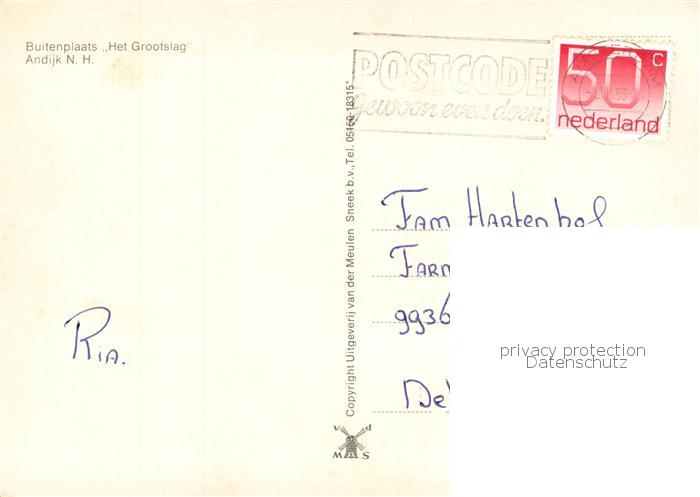 Buitenplaats „Het Grootslag"
Andijk N. H.
POSTCODE
gewoon even doen.
50 c
nederland
Copyright Uitgeverij van der Meulen Sneek b.v., Tel. 05150-18315*
Fam Hartenhol
Farm
9936
Ria.
privacy protection
Datenschutz
v d
M A S